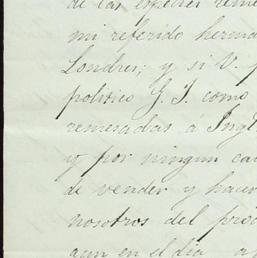 de las especies reme
mi referido herma
Londres; y si V. p
politico G. T. como
remesadas á Ingl
y por ningun ca
de vender y hacer
nosotros del pro
aun en el dia a